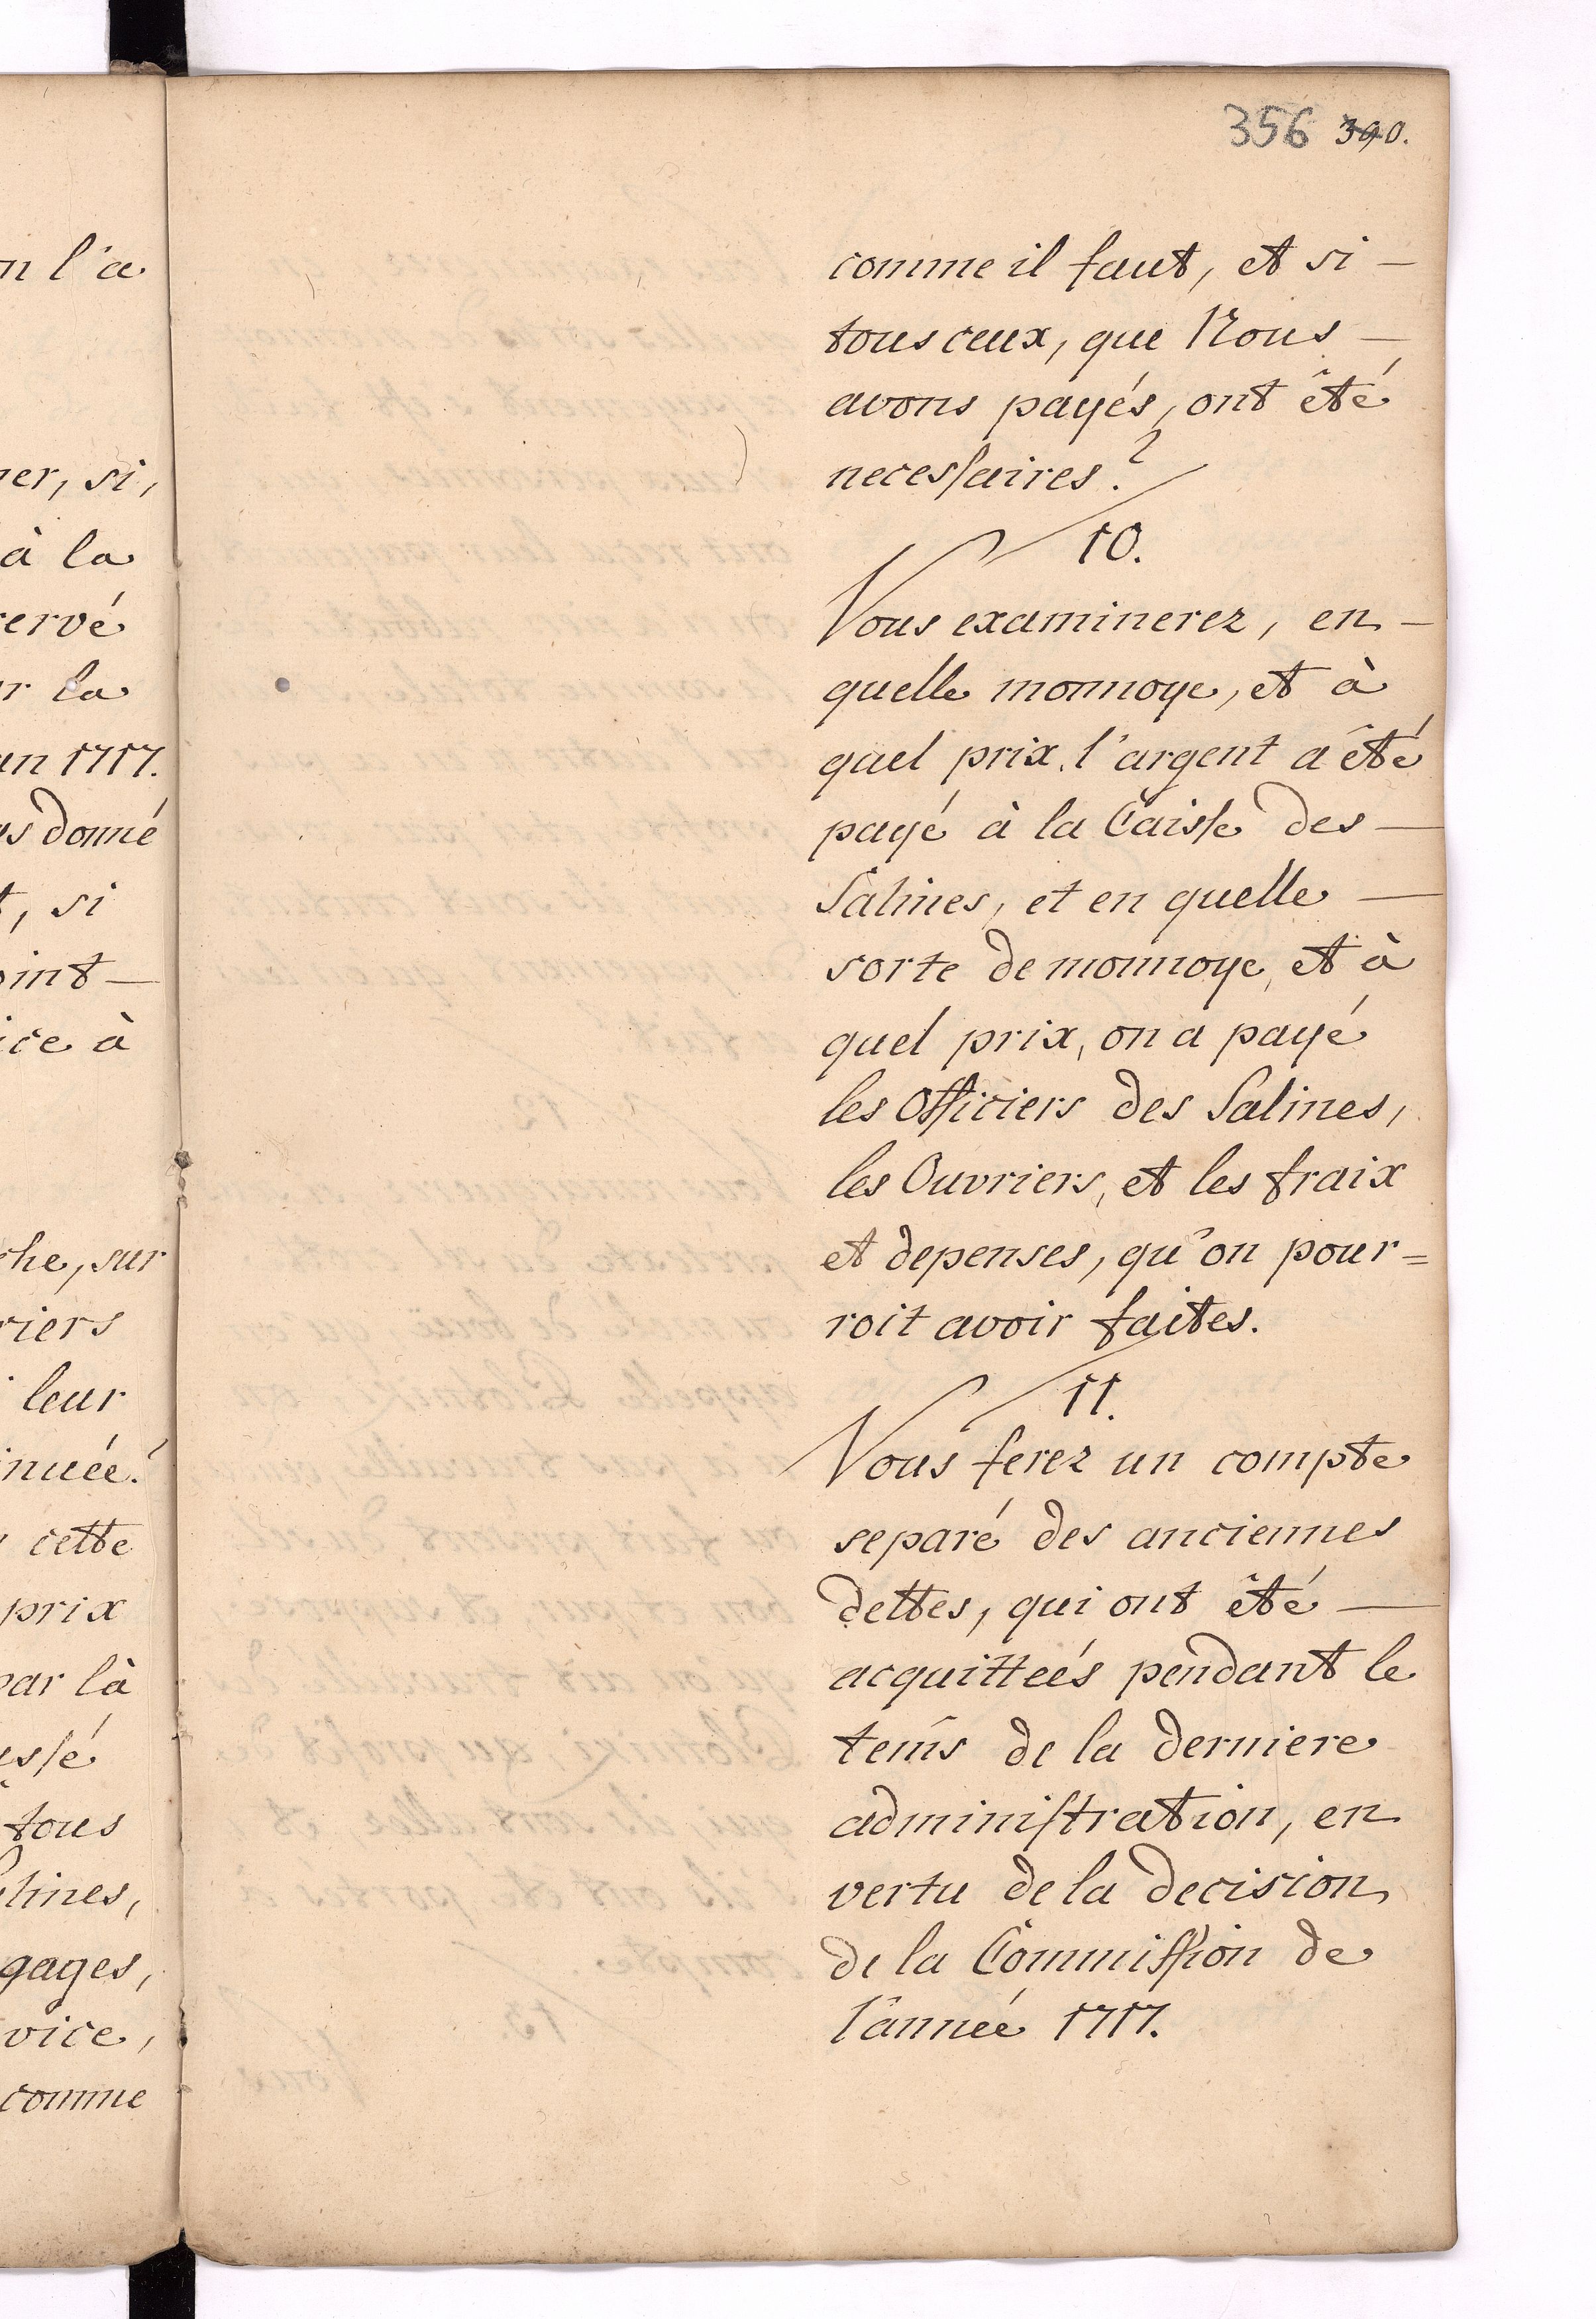 n l'a
ner, si,
à la
servé
r la
an 1717.
as donné
t, si
oint —
ice à
che, sur
riers
leur
inuée!
cette
prix
par là
essé
tous
alines,
gages,
vice,
comme
356 390.
comme il faut, et si —
tous ceux, que Nous —
avons payés, ont êté
necessaires?
10.
Vous examinerez, en —
quelle monnoye, et à
quel prix, l'argent a êté
payé à la Caisse des —
Salines, et en quelle —
sorte de monnoye, et à
quel prix, on a payé
les Officiers des Salines,
les Ouvriers, et les fraix
et depenses, qu'on pour=
roit avoir faites.
11.
Vous ferez un compte
separé des anciennes
dettes, qui ont êté —
acquitteés pendant le
tems de la derniere
administration, en
vertu de la decision
de la Commission de
l'anneé 1717.